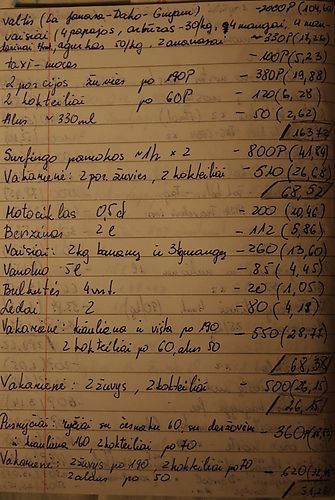 valtis (La Jonosa-Daho-Guyam) -2000P (104,60)
vaisiai (4 papajos, arbūzas -30/kg, 4 mangai, 4 man
agurkas 50/kg, 2 ananasai - 330P (17,26)
taxi-moras -100P (5,23)
2 porcijos žuvies po 190P - 380P (19,88)
2 kokteiliai po 60P - 120 (6,28)
Alus ~ 330ml - 50 (2,62)
Surfingo pamokos ~1h x 2 - 800P (41,84)
Vakarienė: 2 por. žuvies, 2 kokteiliai - 510 (26,68)
68,52
Motociklas 0,5d - 200 (10,46)
Benzinas 2l - 112 (5,86)
Vaisiai: 2kg bananų ir 3kg mangų - 260 (13,60)
Vanduo 5l - 85 (4,45)
Bulkutės 4vnt. - 20 (1,05)
Ledai 2 - 80 (4,18)
Vakarienė: kiauliena ir višta po 190
2 kokteiliai po 60, alus 50 - 550 (28,77)
68,38
Vakarienė: 2 žuvys, 2 kokteiliai - 500 (26,15)
26,15
Pusryčiai: ryžiai su česnaku 60, su daržovėm
ir kiauliena 160, 2 kokteiliai po 70 - 360P
Vakarienė: 2 žuvys po 190, 2 kokteiliai po 70
2 alus po 50 - 620